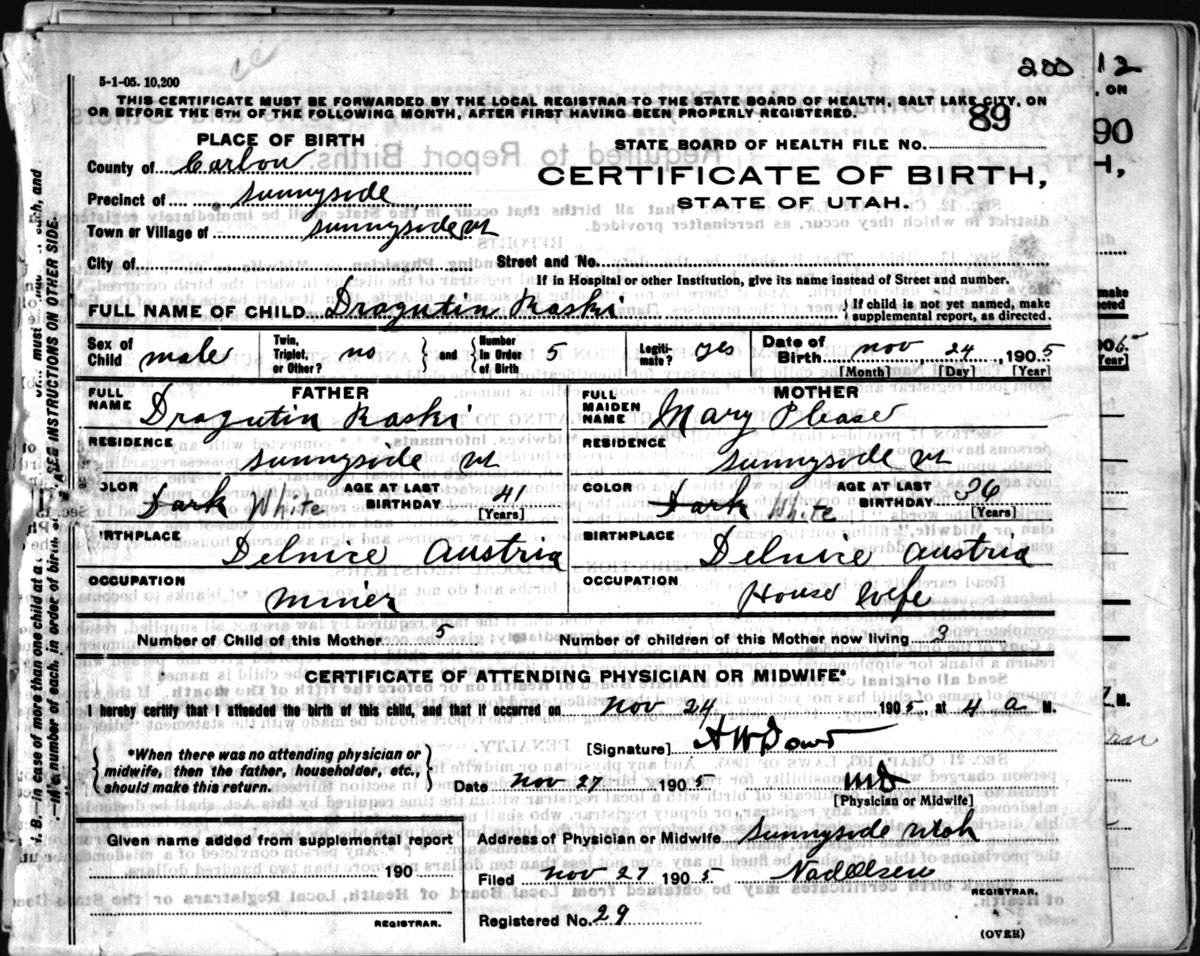 5-1-05. 10,200
200 12
THIS CERTIFICATE MUST BE FORWARDED BY THE LOCAL REGISTRAR TO THE STATE BOARD OF HEALTH, SALT LAKE CITY, ON
OR BEFORE THE 5TH OF THE FOLLOWING MONTH, AFTER FIRST HAVING BEEN PROPERLY REGISTERED.
PLACE OF BIRTH
STATE BOARD OF HEALTH FILE No. 89
County of Carbon
CERTIFICATE OF BIRTH,
Precinct of Sunnyside
STATE OF UTAH.
Town or Village of Sunnyside ut
City of Street and No.
If in Hospital or other Institution, give its name instead of Street and number.
FULL NAME OF CHILD Dragutin Raski
If child is not yet named, make supplemental report, as directed.
Sex of Child male Twin, Triplet, or Other? no and Number In Order of Birth 5 Legiti-mate? yes Date of Birth nov 24, 1905
[Month] [Day] [Year]
FATHER MOTHER
FULL NAME Dragutin Raski FULL MAIDEN NAME Mary Please
RESIDENCE RESIDENCE
Sunnyside ut Sunnyside ut
OLOR Dark White AGE AT LAST BIRTHDAY 41 [Years] COLOR Dark White AGE AT LAST BIRTHDAY 36 [Years]
IRTHPLACE Delnice Austria BIRTHPLACE Delnice Austria
OCCUPATION OCCUPATION
miner House Wife
Number of Child of this Mother 5 Number of children of this Mother now living 3
CERTIFICATE OF ATTENDING PHYSICIAN OR MIDWIFE*
I hereby certify that I attended the birth of this child, and that it occurred on nov 24 1905 at 4 a M.
*When there was no attending physician or midwife, then the father, householder, etc., should make this return.
[Signature] A W Dowd
Date nov 27 1905 MD
[Physician or Midwife]
Given name added from supplemental report
190
REGISTRAR.
Address of Physician or Midwife Sunnyside Utah
Filed nov 27 1905
REGISTRAR.
Registered No. 29
(OVER)
SEE INSTRUCTIONS ON OTHER SIDE.
90